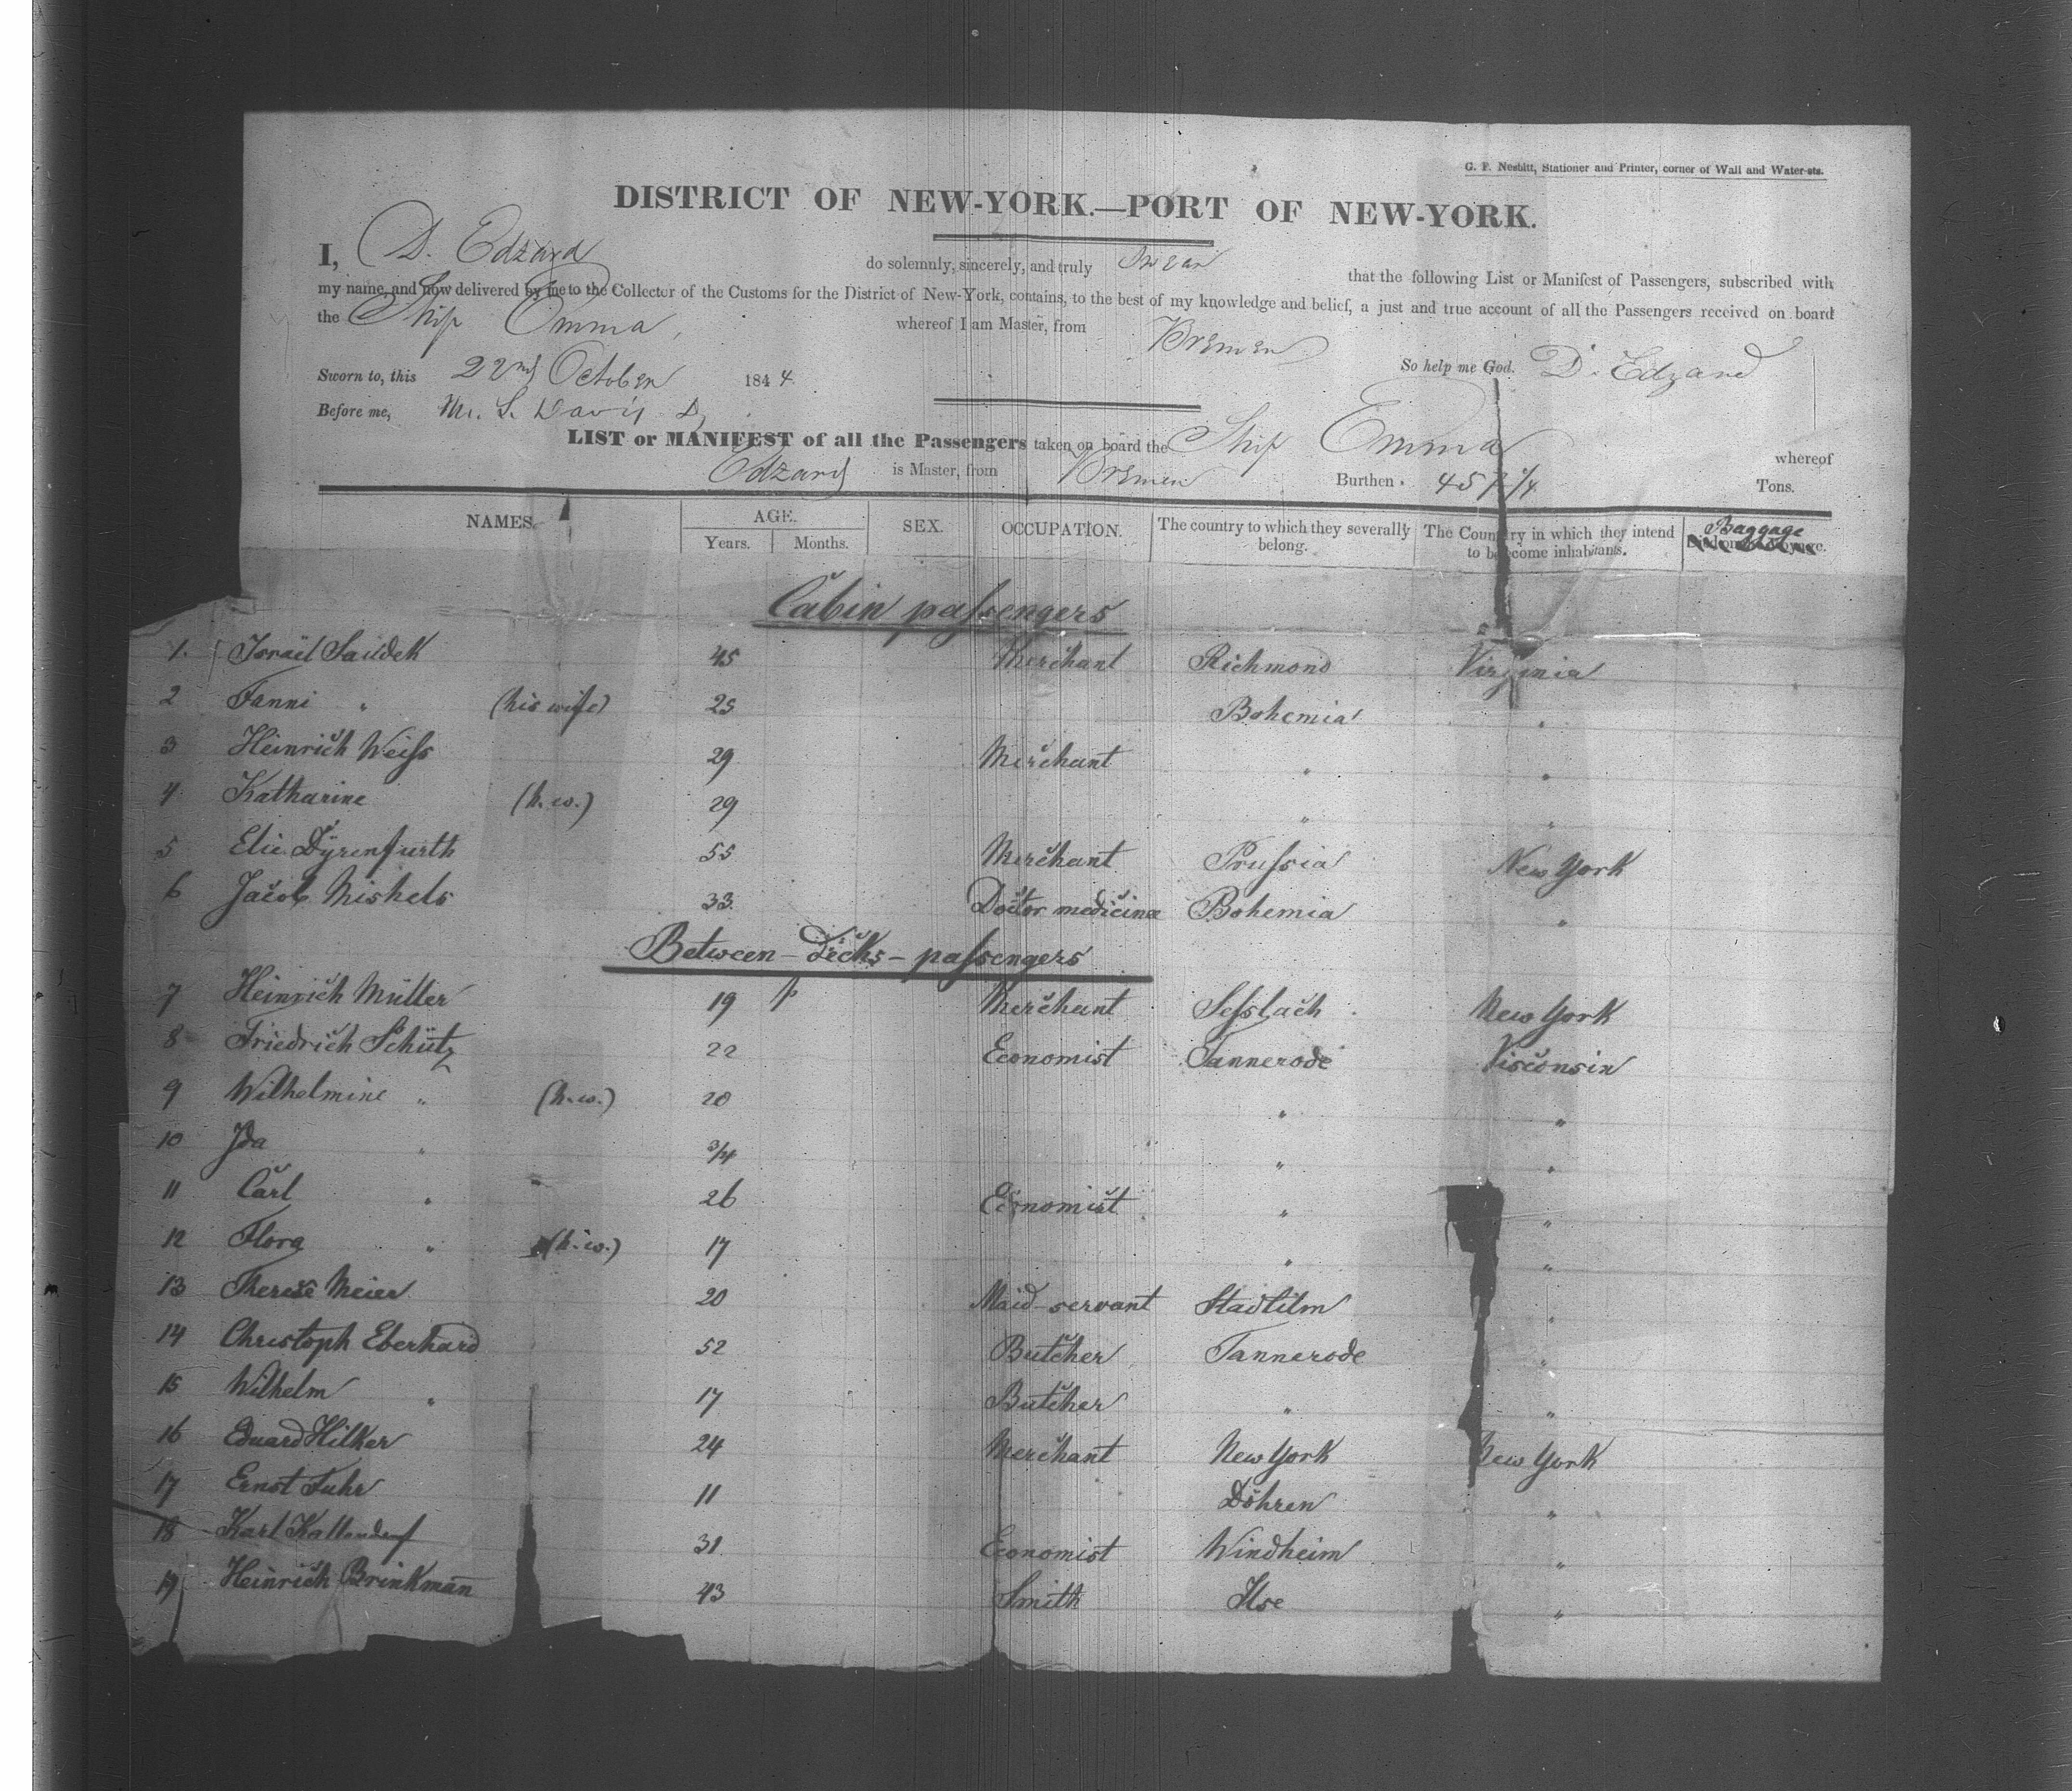 G. F. Nesbitt, Stationer and Printer, corner of Wall and Water-sts.
DISTRICT OF NEW-YORK.—PORT OF NEW-YORK.
I, D. Edzard do solemnly, sincerely, and truly swear that the following List or Manifest of Passengers, subscribed with
my name, and now delivered by me to the Collector of the Customs for the District of New-York, contains, to the best of my knowledge and belief, a just and true account of all the Passengers received on board
the Ship Emma, whereof I am Master, from Bremen
So help me God. D. Edzard
Sworn to, this 22nd October 1844.
Before me, M. S. Davis D
LIST or MANIFEST of all the Passengers taken on board the Ship Emma whereof
Edzard is Master, from Bremen Burthen 457 1/4 Tons.
NAMES. AGE. Years. Months. SEX. OCCUPATION. The country to which they severally belong. The Country in which they intend to become inhabitants. Baggage
Cabin passengers
1. Israel Saudek 45 Merchant Richmond Virginia
2 Fanni " (his wife) 25 Bohemia "
3 Heinrich Weiss 29 Merchant " "
4 Katharine (h.w.) 29 " "
5 Elie Dyrenfurth 55 Merchant Prussia New York
6 Jacob Mishels 33 Doctor medicinae Bohemia "
Between-Decks-passengers
7 Heinrich Müller 19 Merchant Sesslach New York
8 Friedrich Schütz 22 Economist Tannerode Visconsin
9 Wilhelmine " (h.w.) 20 " "
10 Ida " 3/4 " "
11 Carl " 26 Economist " "
12 Flora " (h.w.) 17 " "
13 Therese Meier 20 Maid-servant Stadtilm "
14 Christoph Eberhard 52 Butcher Tannerode "
15 Wilhelm " 17 Butcher " "
16 Eduard Hilker 24 Merchant New York New York
17 Ernst Fuhr 11 Döhren "
18 Karl Kattendorf 31 Economist Windheim "
19 Heinrich Brinkmann 43 Smith Ilse "